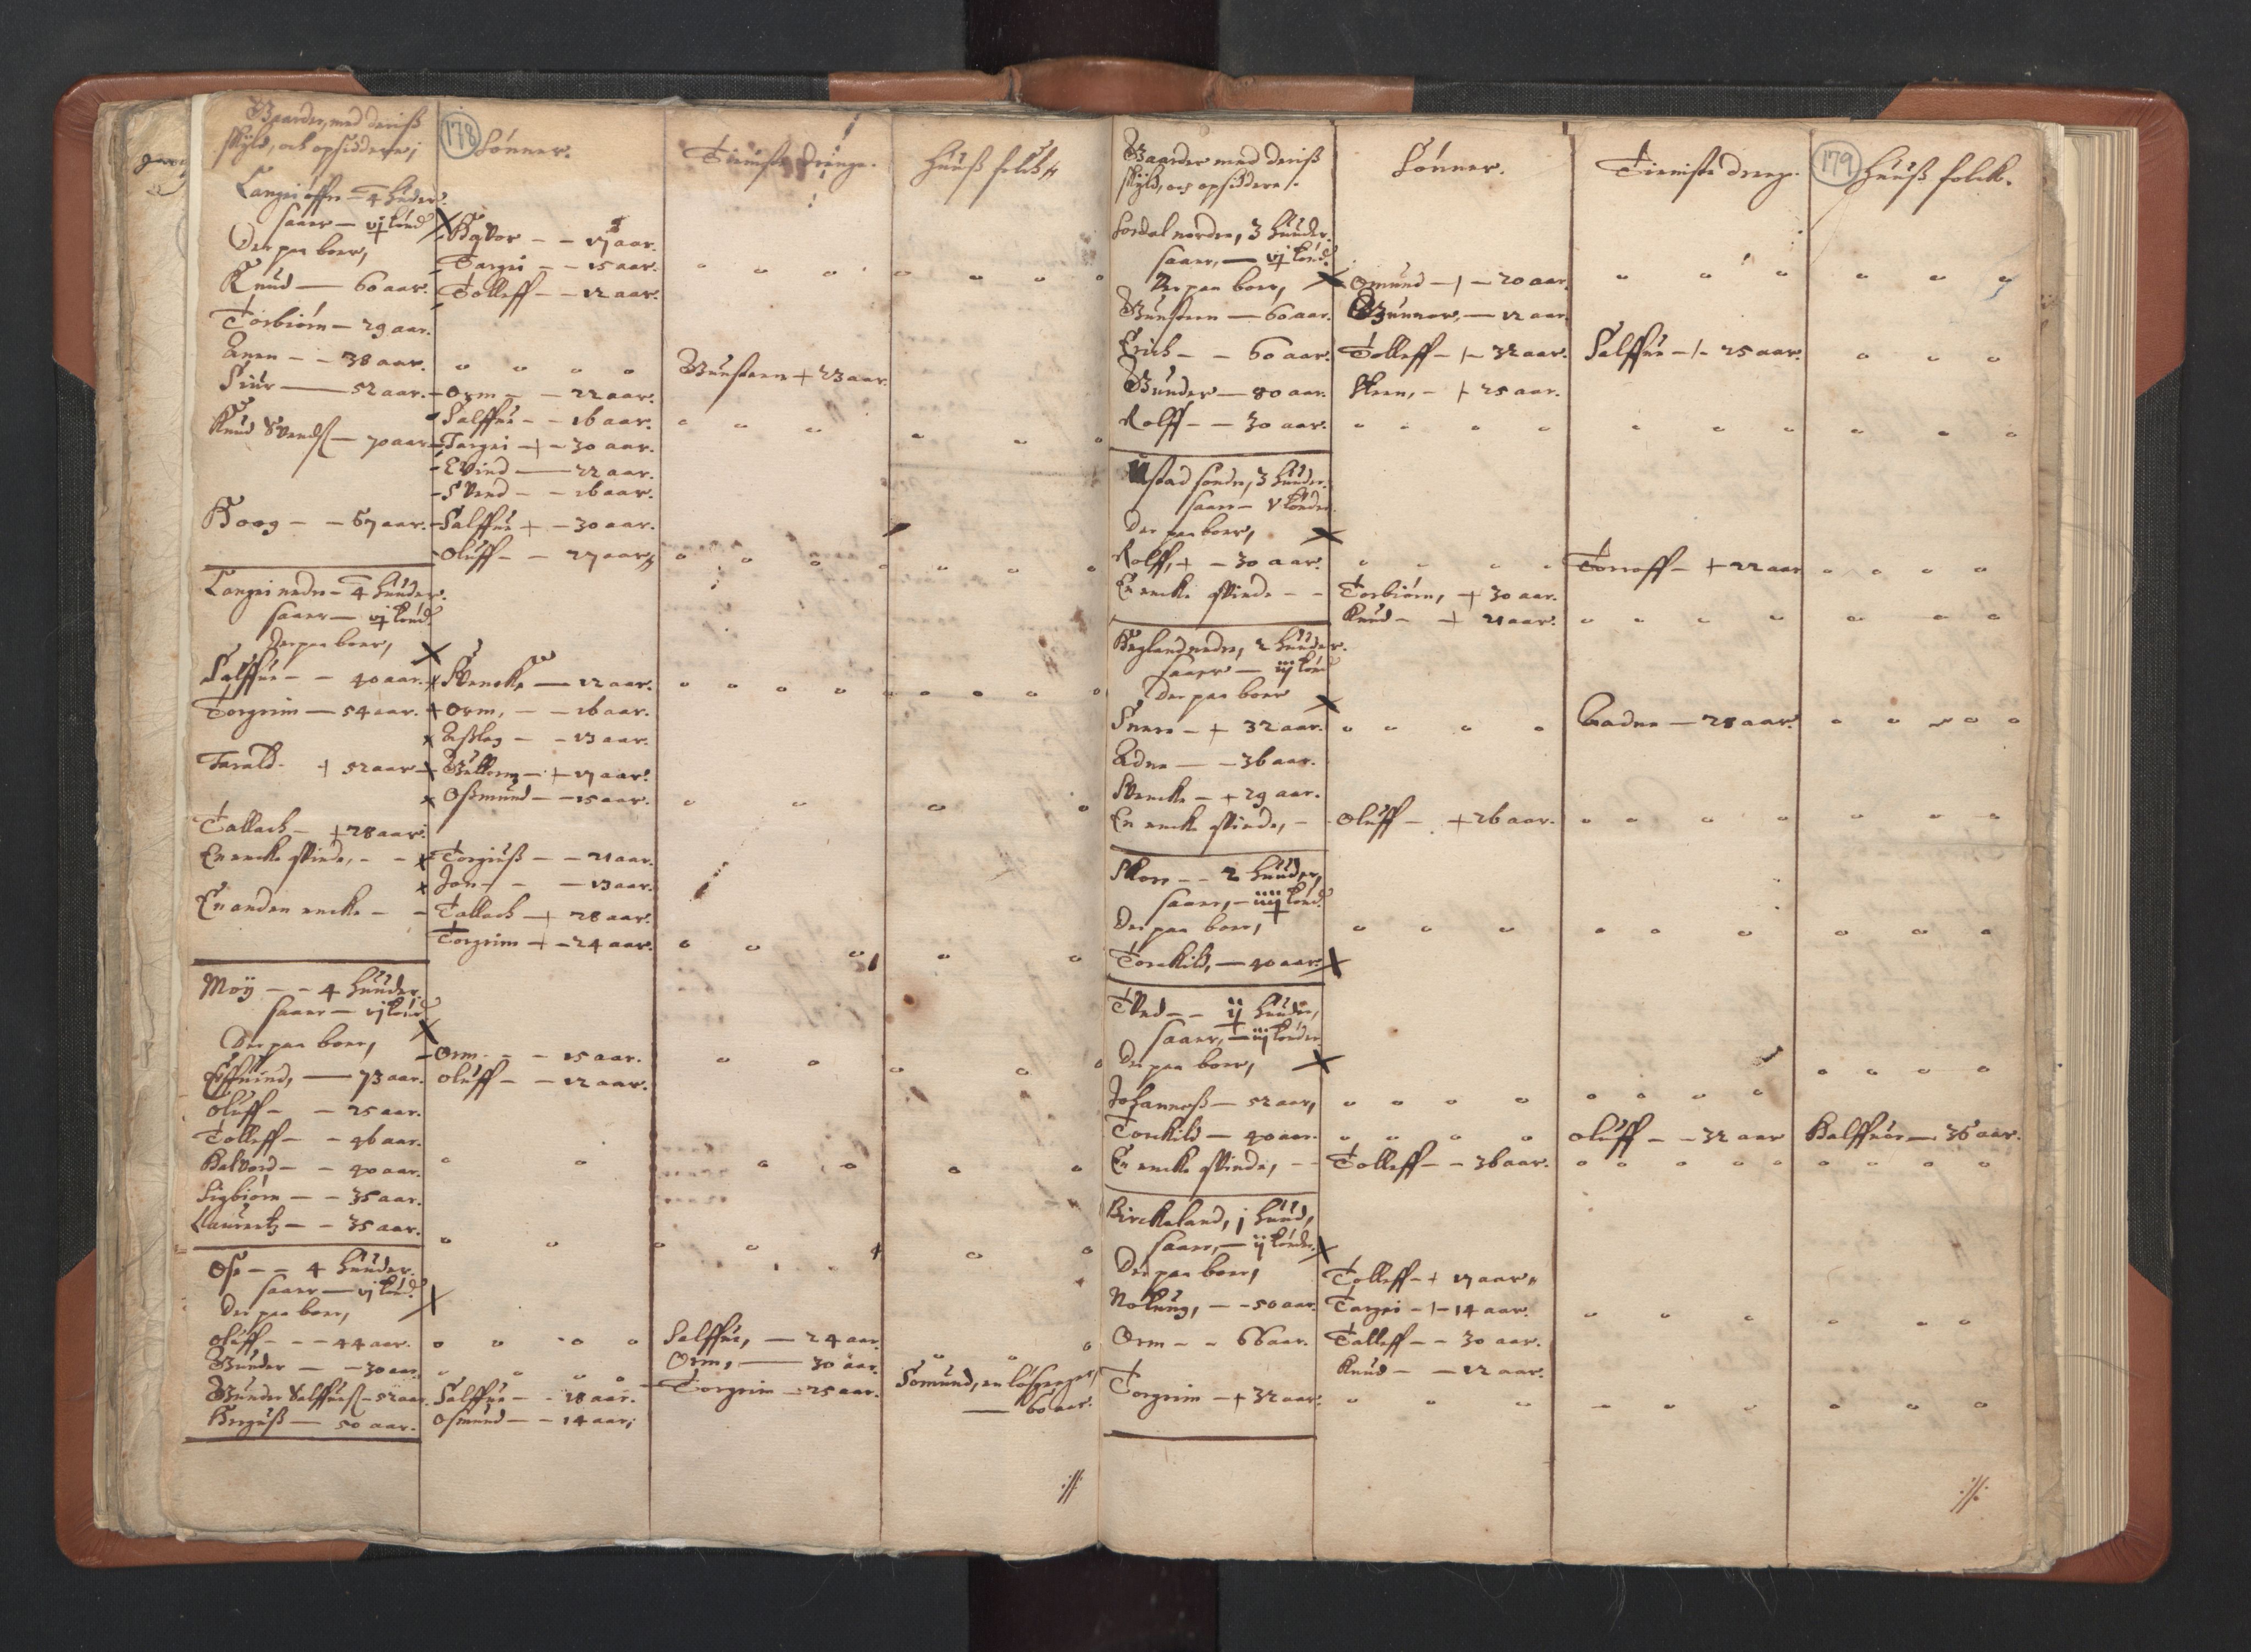 Gaarder, med deriß
skyld, och opsiddere,
178
Sønner.
Tieniste drenge.
Huuß folck
Langei øffre - 4 huder.
saaer - vj tønd
Der paa boer,
Knud - 60 aar.
Torbiørn - 29 aar.
Anen - - 38 aar.
Siur - 52 aar.
Knud Svends - 70 aar
Boog - - 67 aar.
Havor - - 17 aar.
Targei - - 15 aar.
Tolleff - - 12 aar.
Gunstein + 23 aar.
Orm - - 22 aar.
Salffue - - 16 aar.
Targei + - 30 aar.
Evind - 22 aar.
Svend - - 16 aar.
Salffue + - 30 aar.
Oluff - - 27 aar
Langei nedre - 4 huder.
saaer - vj tønd
Der paa boer,
Salffue - - 40 aar.
Torgrim - 54 aar.
Tarald - + 52 aar
Tallach - + 28 aar.
En encke qvinde, - -
En anden encke - -
Svencke - 12 aar.
Orm, - - 16 aar.
Aßlag - - 13 aar.
Guttorm - + 17 aar.
Oßmund - - 15 aar.
Torgiuß - - 21 aar.
Jon - - - 13 aar.
Tallach + 28 aar.
Torgrim + - 24 aar.
Moÿ - - 4 huuder.
saaer - vj tønd
Der paa boer,
Effuind, - 73 aar.
Oluff - - 25 aar.
Tolleff - - 46 aar.
Halvord - - 40 aar.
Sigbiørn - - 35 aar.
Lauretz - - 35 aar.
Orm - - 15 aar.
Oluff - - 12 aar.
Ose - - 4 huuder.
saaer - vj tønd.
Der paa boer,
Oluff - - - 44 aar.
Gunder - - 30 aar.
Gunder Salffues - 52 aar.
Berguß - 50 aar.
Salffue - - 18 aar.
Osmund - - 14 aar,
Salffue, - 24 aar
Orm, - 30 aar.
Torgrim - 25 aar.
Somund, en løsgenger,
- 60 aar.
://:
Gaarder med deriß
skyld, och opsiddere.
Sønner.
Tieniste drenge.
179
Huuß folck.
Sordal nordre, 3 huuder.
saaer, - vj tønd.
Der paa boer,
Gunstein - 60 aar.
Erich - - 60 aar.
Gunder - 80 aar.
Rolff - - 30 aar.
Omund - + - 20 aar.
Gunner, - 12 aar.
Tolleff - + - 32 aar.
Steen, - + 25 aar.
Salffue - + - 25 aar.
Ustad søndre, 3 huuder.
saaer - v tønder
Der paa boer,
Rolff, + - 30 aar.
En encke qvinde - -
Torbiørn, + 30 aar.
Knud - + 21 aar.
Torroff - + 22 aar
Hegland nedre, 2 huuder.
saaer - iij tønd
Der paa boer
Snare - + 32 aar.
Adne - - 36 aar.
Svencke - + 29 aar.
En encke qvinde, -
Oluff - + 26 aar.
Aadne - 28 aar.
Skore - - 2 huuder,
saaer, - iiij tønd.
Der paa boer,
Torckild, - 40 aar.
Tved - - ij huuder,
saaer, - iij tønder
Der paa boer,
Johanneß - 52 aar,
Torckild - 40 aar.
En encke qvinde, - -
Tolleff - - 36 aar.
Oluff - - 32 aar
Halffuor - 36 aar.
Birckeland, j huud,
saaer, - ij tønder.
Der paa boer,
Nottung, - - 50 aar.
Orm - - 66 aar.
Torgrim - + 32 aar.
Tolleff - + 17 aar
Targei - + - 14 aar.
Talleff - - 30 aar.
Knud - - 12 aar.
://: